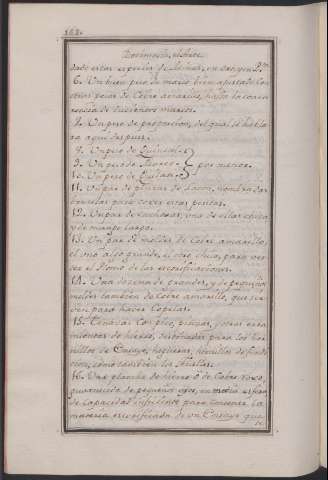 162.
dad estas especies de
6. Un buen peso de marco, bien ajustado con
otros pesos de Cobre amarillo, hasta la concu
rrencia de doscientos marcos.
7. Un peso de proporcion, del qual se habla
ra aqui despues.
8. Un peso de Quilates
9. Un peso de } por menor.
10. Un peso de Quilates
11. Un par de pinzas de Laton, nombradas
bruselas para coger estas pesitas.
12. Un par de cucharas, una de ellas chica,
y de mango largo.
13. Un par de moldes de Cobre amarillo,
el uno algo grande, el otro chico, para ver
ter el Plomo de las escorificaciones.
14. Una dozena de grandes, y de pequeños
moldes tambien de Cobre amarillo, que sir
ven para hacer Copelas.
15. Tenazas con pico, pinzas, y otras erra
mientas de hierro, destinadas para los hor
nillos de Ensaye, hogueras, hornillos de fundi
cion, como tambien las
16. Una plancha de hierro ó de Cobre roxo,
guarnecida de pequeños ojos, en media esfera
de capacidad suficiente para contener la
materia escorificada de un Ensaye que